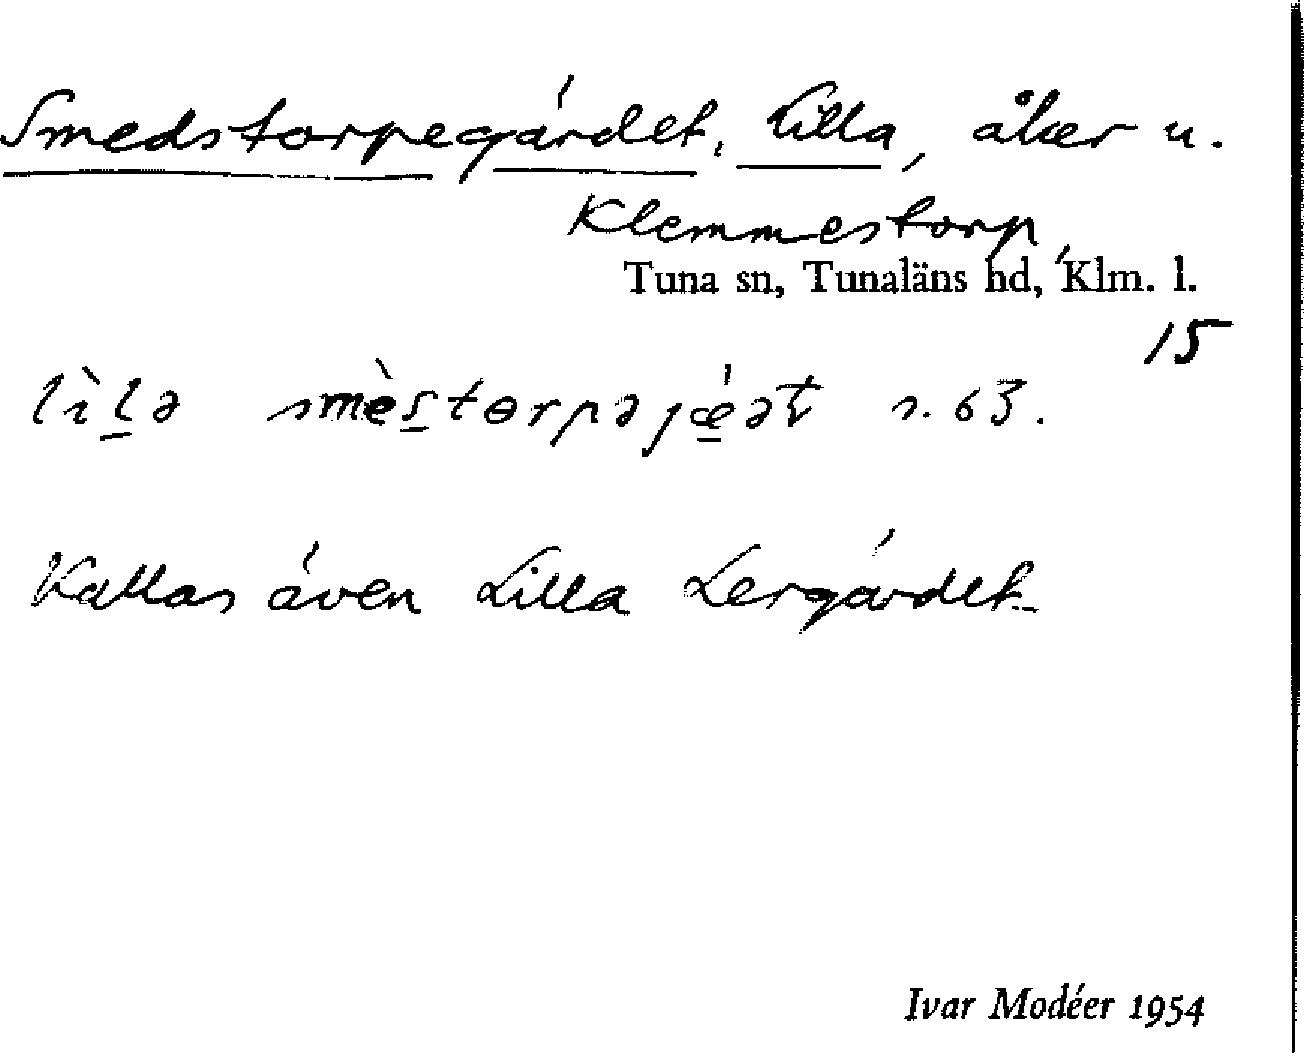 Smedstorpegärdet, Lilla, åker u.
Klemmestorp,
Tuna sn, Tunaläns hd, Klm. l.
15
lìl̠ə smès̠tɵrpəjǽ̠ət s. 63.
Kallas även Lilla Lergärdet.
Ivar Modéer 1954